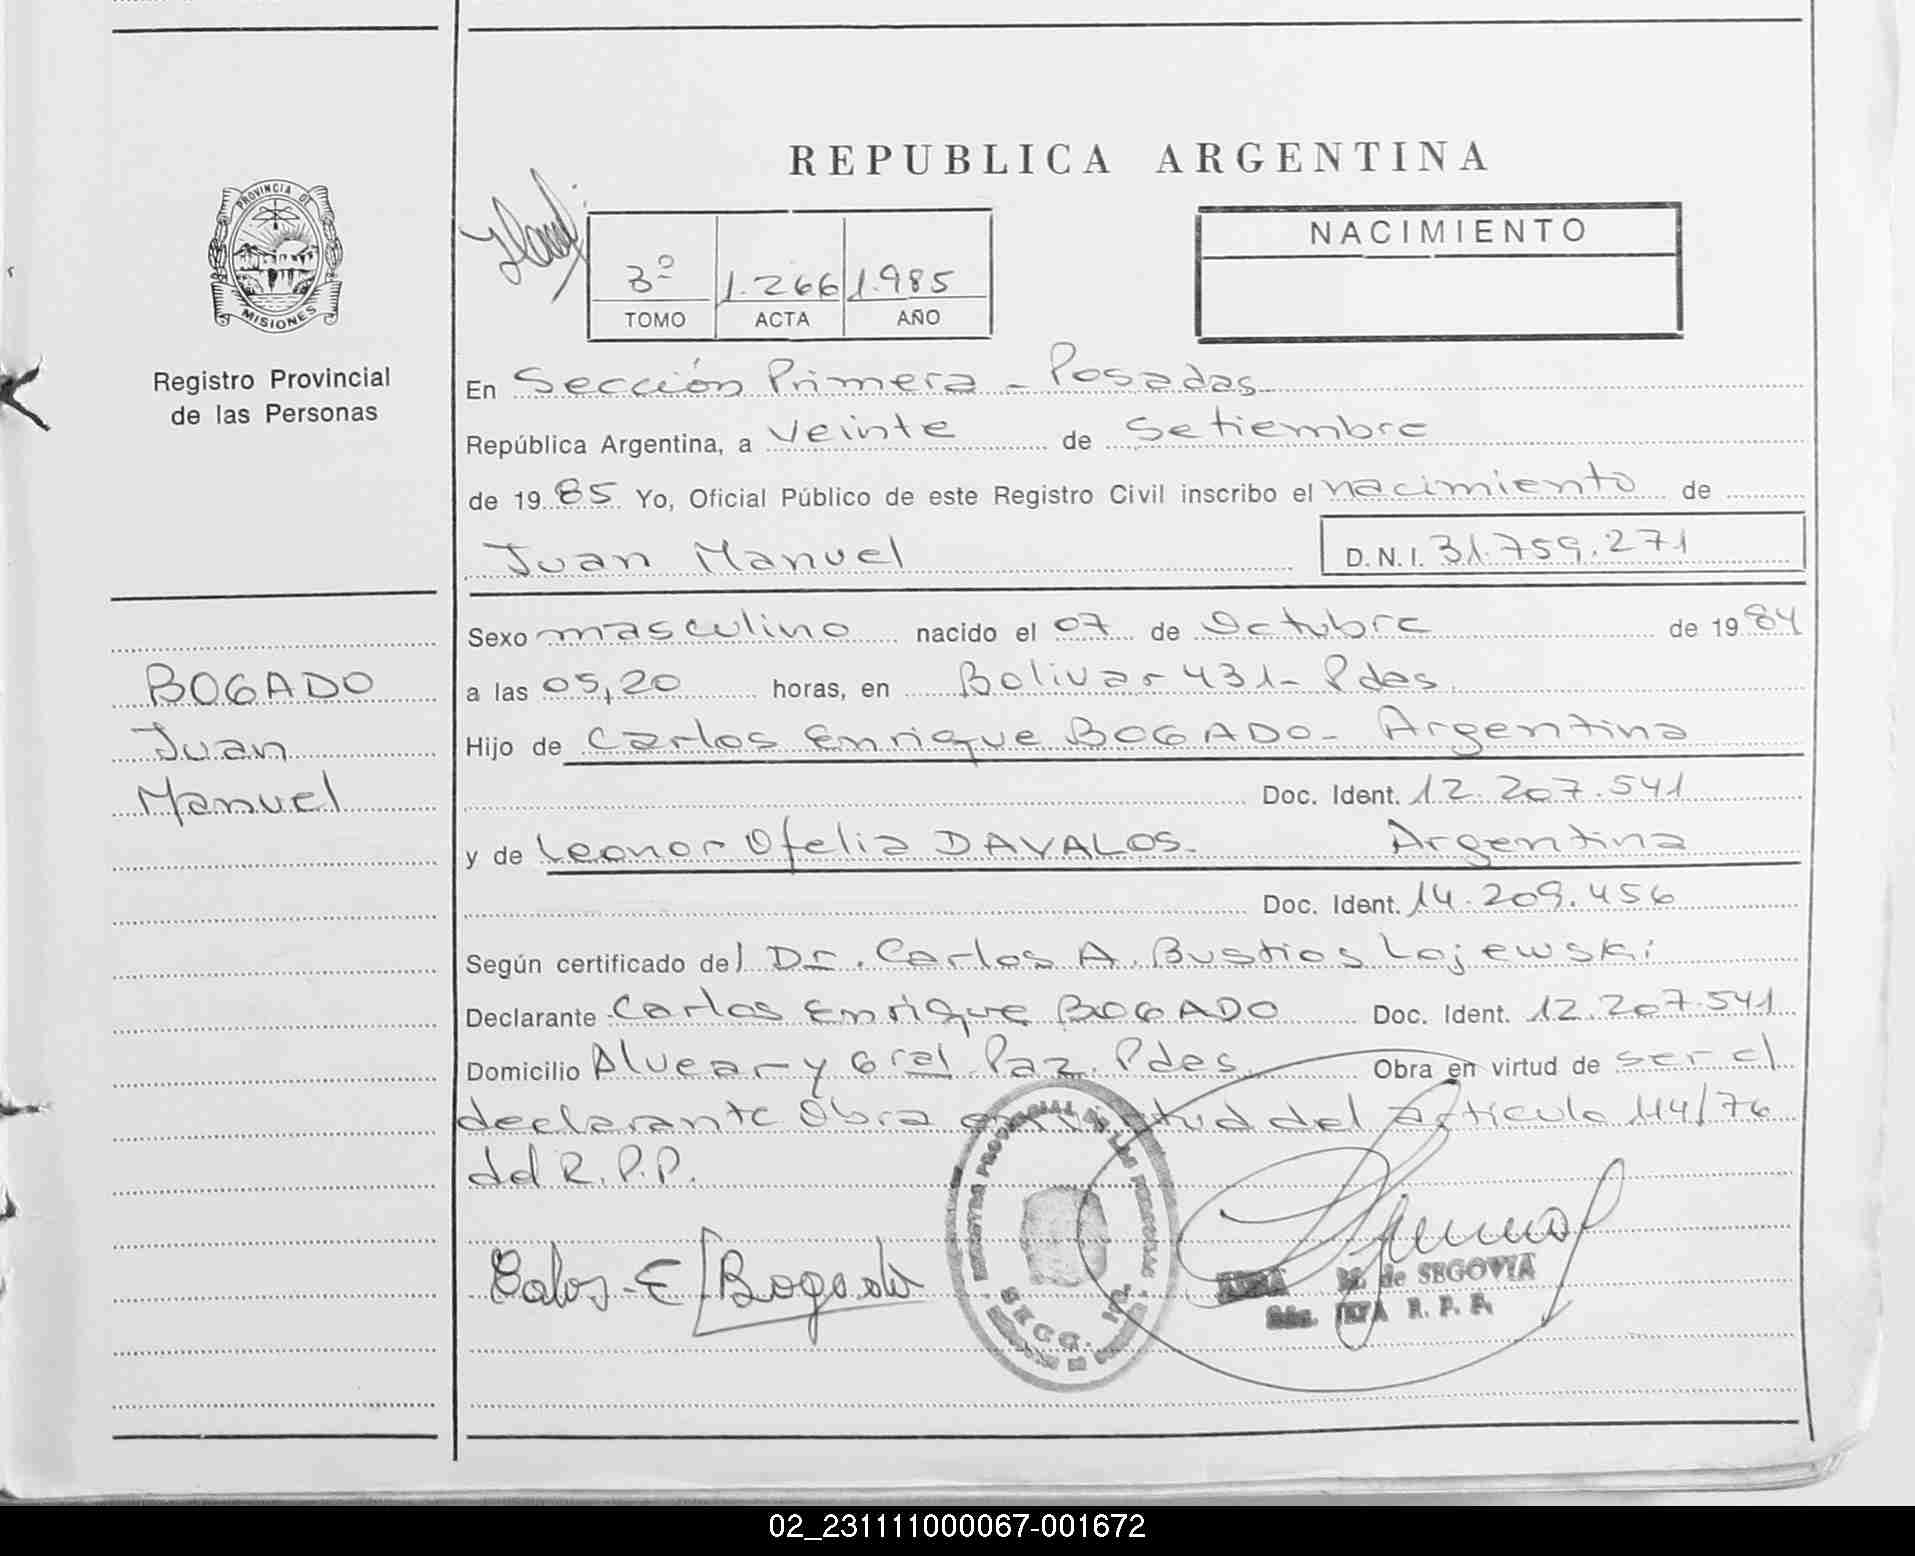 REPUBLICA ARGENTINA
PROVINCIA DE
MISIONES
Registro Provincial
de las Personas
3º 1.266 1.985
TOMO ACTA AÑO
NACIMIENTO
En Sección Primera - Posadas
República Argentina, a Veinte de Setiembre
de 19 85 Yo, Oficial Público de este Registro Civil inscribo el nacimiento de
Juan Manuel D.N.I. 31.759.271
BOGADO
Juan
Manuel
Sexo masculino nacido el 07 de Octubre de 19 84
a las 05,20 horas, en Bolivar 431- Pdas
Hijo de Carlos Enrique BOGADO- Argentina
Doc. Ident. 12.207.541
y de Leonor Ofelia DAVALOS- Argentina
Doc. Ident. 14.209.456
Según certificado del Dr. Carlos A. Bustios Lojewski
Declarante Carlos Enrique BOGADO Doc. Ident. 12.207.541
Domicilio Alvear y Gral Paz. Pdas Obra en virtud de ser el
declarante Obra en virtud del articulo 114/76
del R.P.P.
REGISTRO PROVINCIAL DE LAS PERSONAS
SECC.
Calos E Bogado
de SEGOVIA
R. P. P.
02_231111000067-001672